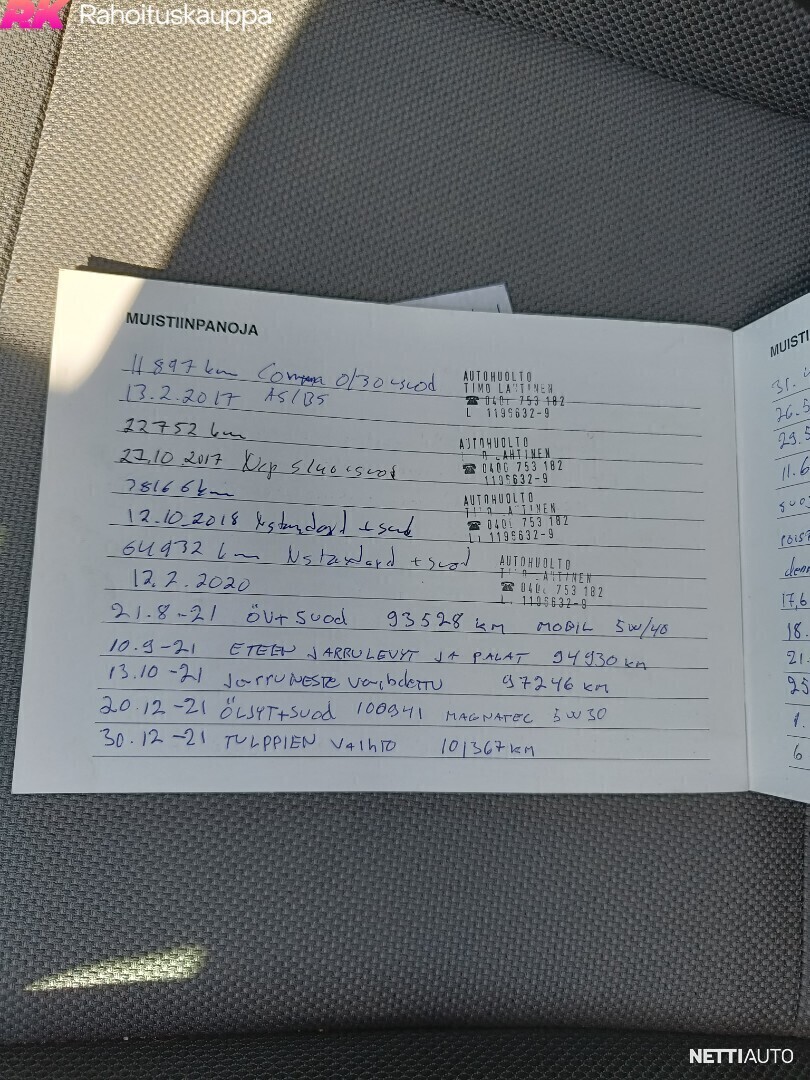 RK Rahoituskauppa
MUISTIINPANOJA
11897 km 0/30 +suod
13.2.2017 A5/B5
AUTOHUOLTO
TIMO LAHTINEN
☎ 0400 753 182
L 1196632-9
22752 km
27.10 2017 +suod
AUTOHUOLTO
LAHTINEN
☎ 0400 753 182
1196632-9
12.10.2018 +suod
AUTOHUOLTO
☎ 040 753 182
L. 1196632-9
64932 km Nstandard +suod
12.2.2020
AUTOHUOLTO
LAHTINEN
☎ 040 753 182
L. 1196632-9
21.8-21 ÖV+ SUOD 93528 KM MOBIL 5W/40
10.9-21 ETEEN JARRULEVYT JA PALAT 94930 KM
13.10-21 JARRUNESTE vaihdettu 97246 KM
20.12-21 ÖLJYT+SUOD 100941 MAGNATEC 5W30
30.12-21 TULPPIEN VAIHTO 101367 KM
MUISTI
31.
26.5
29.5
11.6
17,6
18.
21.
25
1.
6
NETTIAUTO